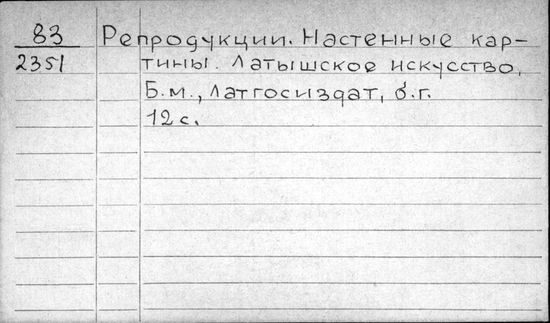 83 Репродукции. Настенные кар-
2351 тины. Латышское искусство,
Б.м., Латгосиздат, б.г.
12 с.